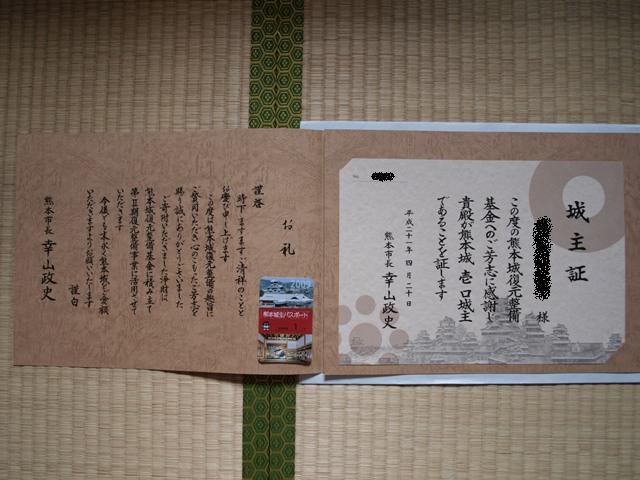 城主証
様
この度の熊本城復元整備
基金へのご芳志に感謝し
貴殿が熊本城 壱口城主
であることを証します
平成二十一年 四月二十日
熊本市長 幸山政史
お礼
謹啓
時下 ますますご清祥のことと
お慶び申し上げます
この度は熊本城復元整備の趣旨に
ご賛同いただき心のこもったご芳志を
賜り誠にありがとうございました
ご寄附いただきました浄財は
熊本城復元整備基金に積み立て
第Ⅱ期復元整備事業に活用させて
いただきます
今後とも末永く熊本城をご愛顧
いただきますようお願いいたします
謹白
熊本市長 幸山政史
2009
熊本城主パスポート